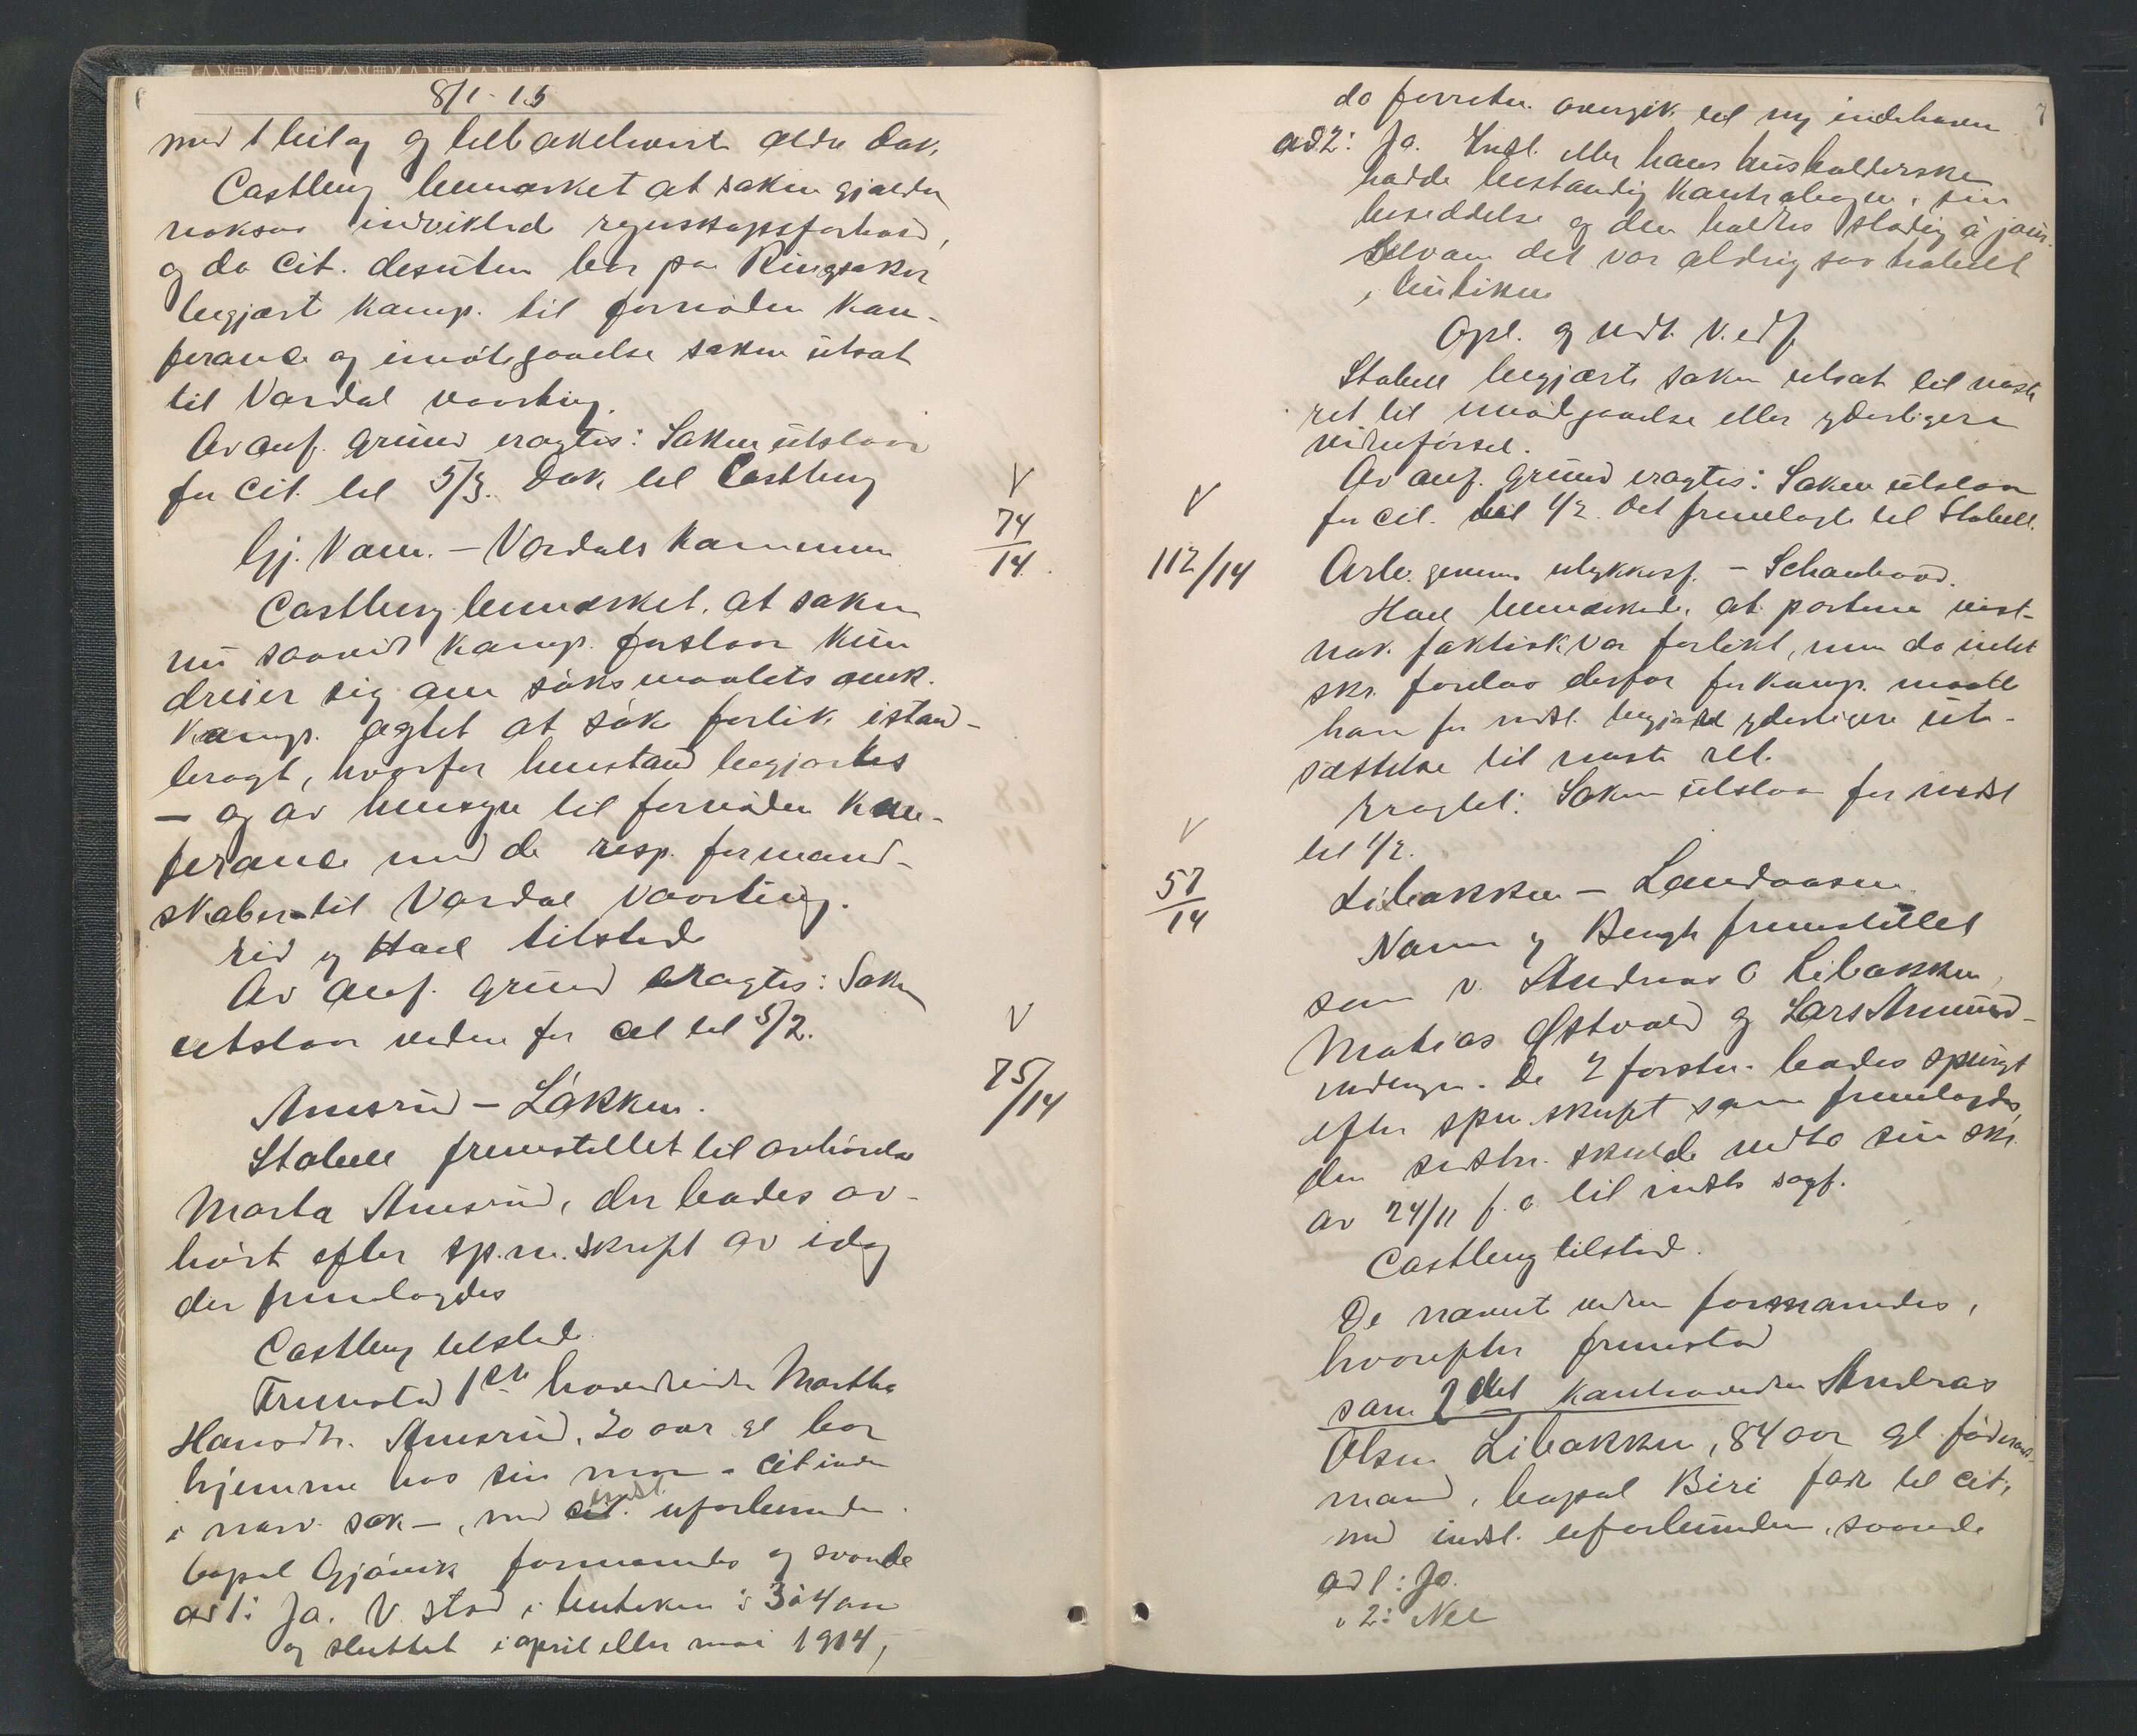 8/1-15
med 1 bilag og tilbakeleverte ældre dok.
Castberg bemærket at saken gjælder
noksaa indviklede regnskapsforhold,
og da Cit. desuten bor paa Ringsaker
begjært komp. til fornøden kon-
ferance og imøtegaaelse saken utsat
til Vardal vaarting.
Av anf. grund eragtes: Saken utstaar
for cit. til 5/3. Dok. til Castberg
V
74/14
Gj. Vam. – Vardals kommune
Castberg bemærket, at saken
nu saavidt komp. forstaar kun
dreier sig om søksmaalets omk.
Komp. agtet at søke forlik istand-
bragt, hvorfor henstand begjærtes
– og av hensyn til fornøden kon-
ferance med de resp. formand-
skaber til Vardal vaarting.
Eid og Hoel tilstede
Av anf. grund eragtes: Saken
utstaar videre for cit til 5/2.
V
75/14
Amsrud – Løkken.
Stabell fremstillet til avhørelse
Marta Amsrud, der bades av-
hørt efter sp.m. skrift av idag
der fremlagdes
Castberg tilstede.
Fremstod 1ste hovedvidne Martha
Hansdtr. Amsrud, 20 aar gl bor
hjemme hos sin mor – citinden
i nærv. sak –, med indst. uforbunden
bopæl Gjøvik formanedes og svarede
ad 1: Ja. V. stod i butiken i 3 à 4 aar
og sluttet i april eller mai 1914,
7
da forretn. overgik til ny indehaver
ad 2: Ja. Indst. eller hans husholderske
hadde bestandig kontrabogen i sin
besiddelse og den holdtes stadig à jour.
Selvom det var aldrig saa travelt
i butiken
Opl. og vedt. V. edf.
Stabell begjærte saken utsat til næste
ret til imødegaaelse eller yderligere
vidneførsel.
V
Av anf. grund eragtes: Saken utstaar
for cit. til 1/2. Det fremlagte til Stabell.
112/14
Arb. gjennem ulykkesf. – Schanbood.
Hoel bemerkede, at partene vist-
nok faktisk var forlikt, men da intet
skr. forelaa derfor for komp. maatte
han for indst. begjære yderligere ut-
sættelse til næste ret.
Eragtet: Saken utstaar for indst
til 1/2.
V
57/14
Libakken – Landaasen.
Vam og Bergh fremstillet
som v. Andreas O Libakken,
Matias Østvold og Lars Amund-
indengen. De 2 førstn. bades spurgt
efter spm. skrift som fremlagdes,
den sidstn. skulde vedta sin skr.
av 24/11 f. a. til indst. sagf.
Castberg tilstede.
De nævnte vidner formanedes,
hvorefter fremstod
som 2det kontravidne Andreas
Olsen Libakken, 84 aar gl. føderaads-
mand, bopæl Biri far til cit,
med indst. uforbunden, svarede
ad 1: Ja.
" 2: Nei